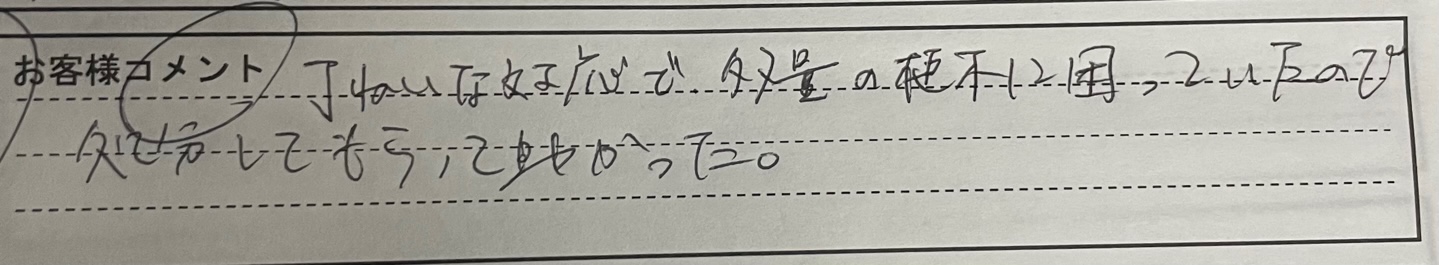 お客様コメント 丁ねいな対応で、多量の植木に困っていたので
処分してもらって助かった。